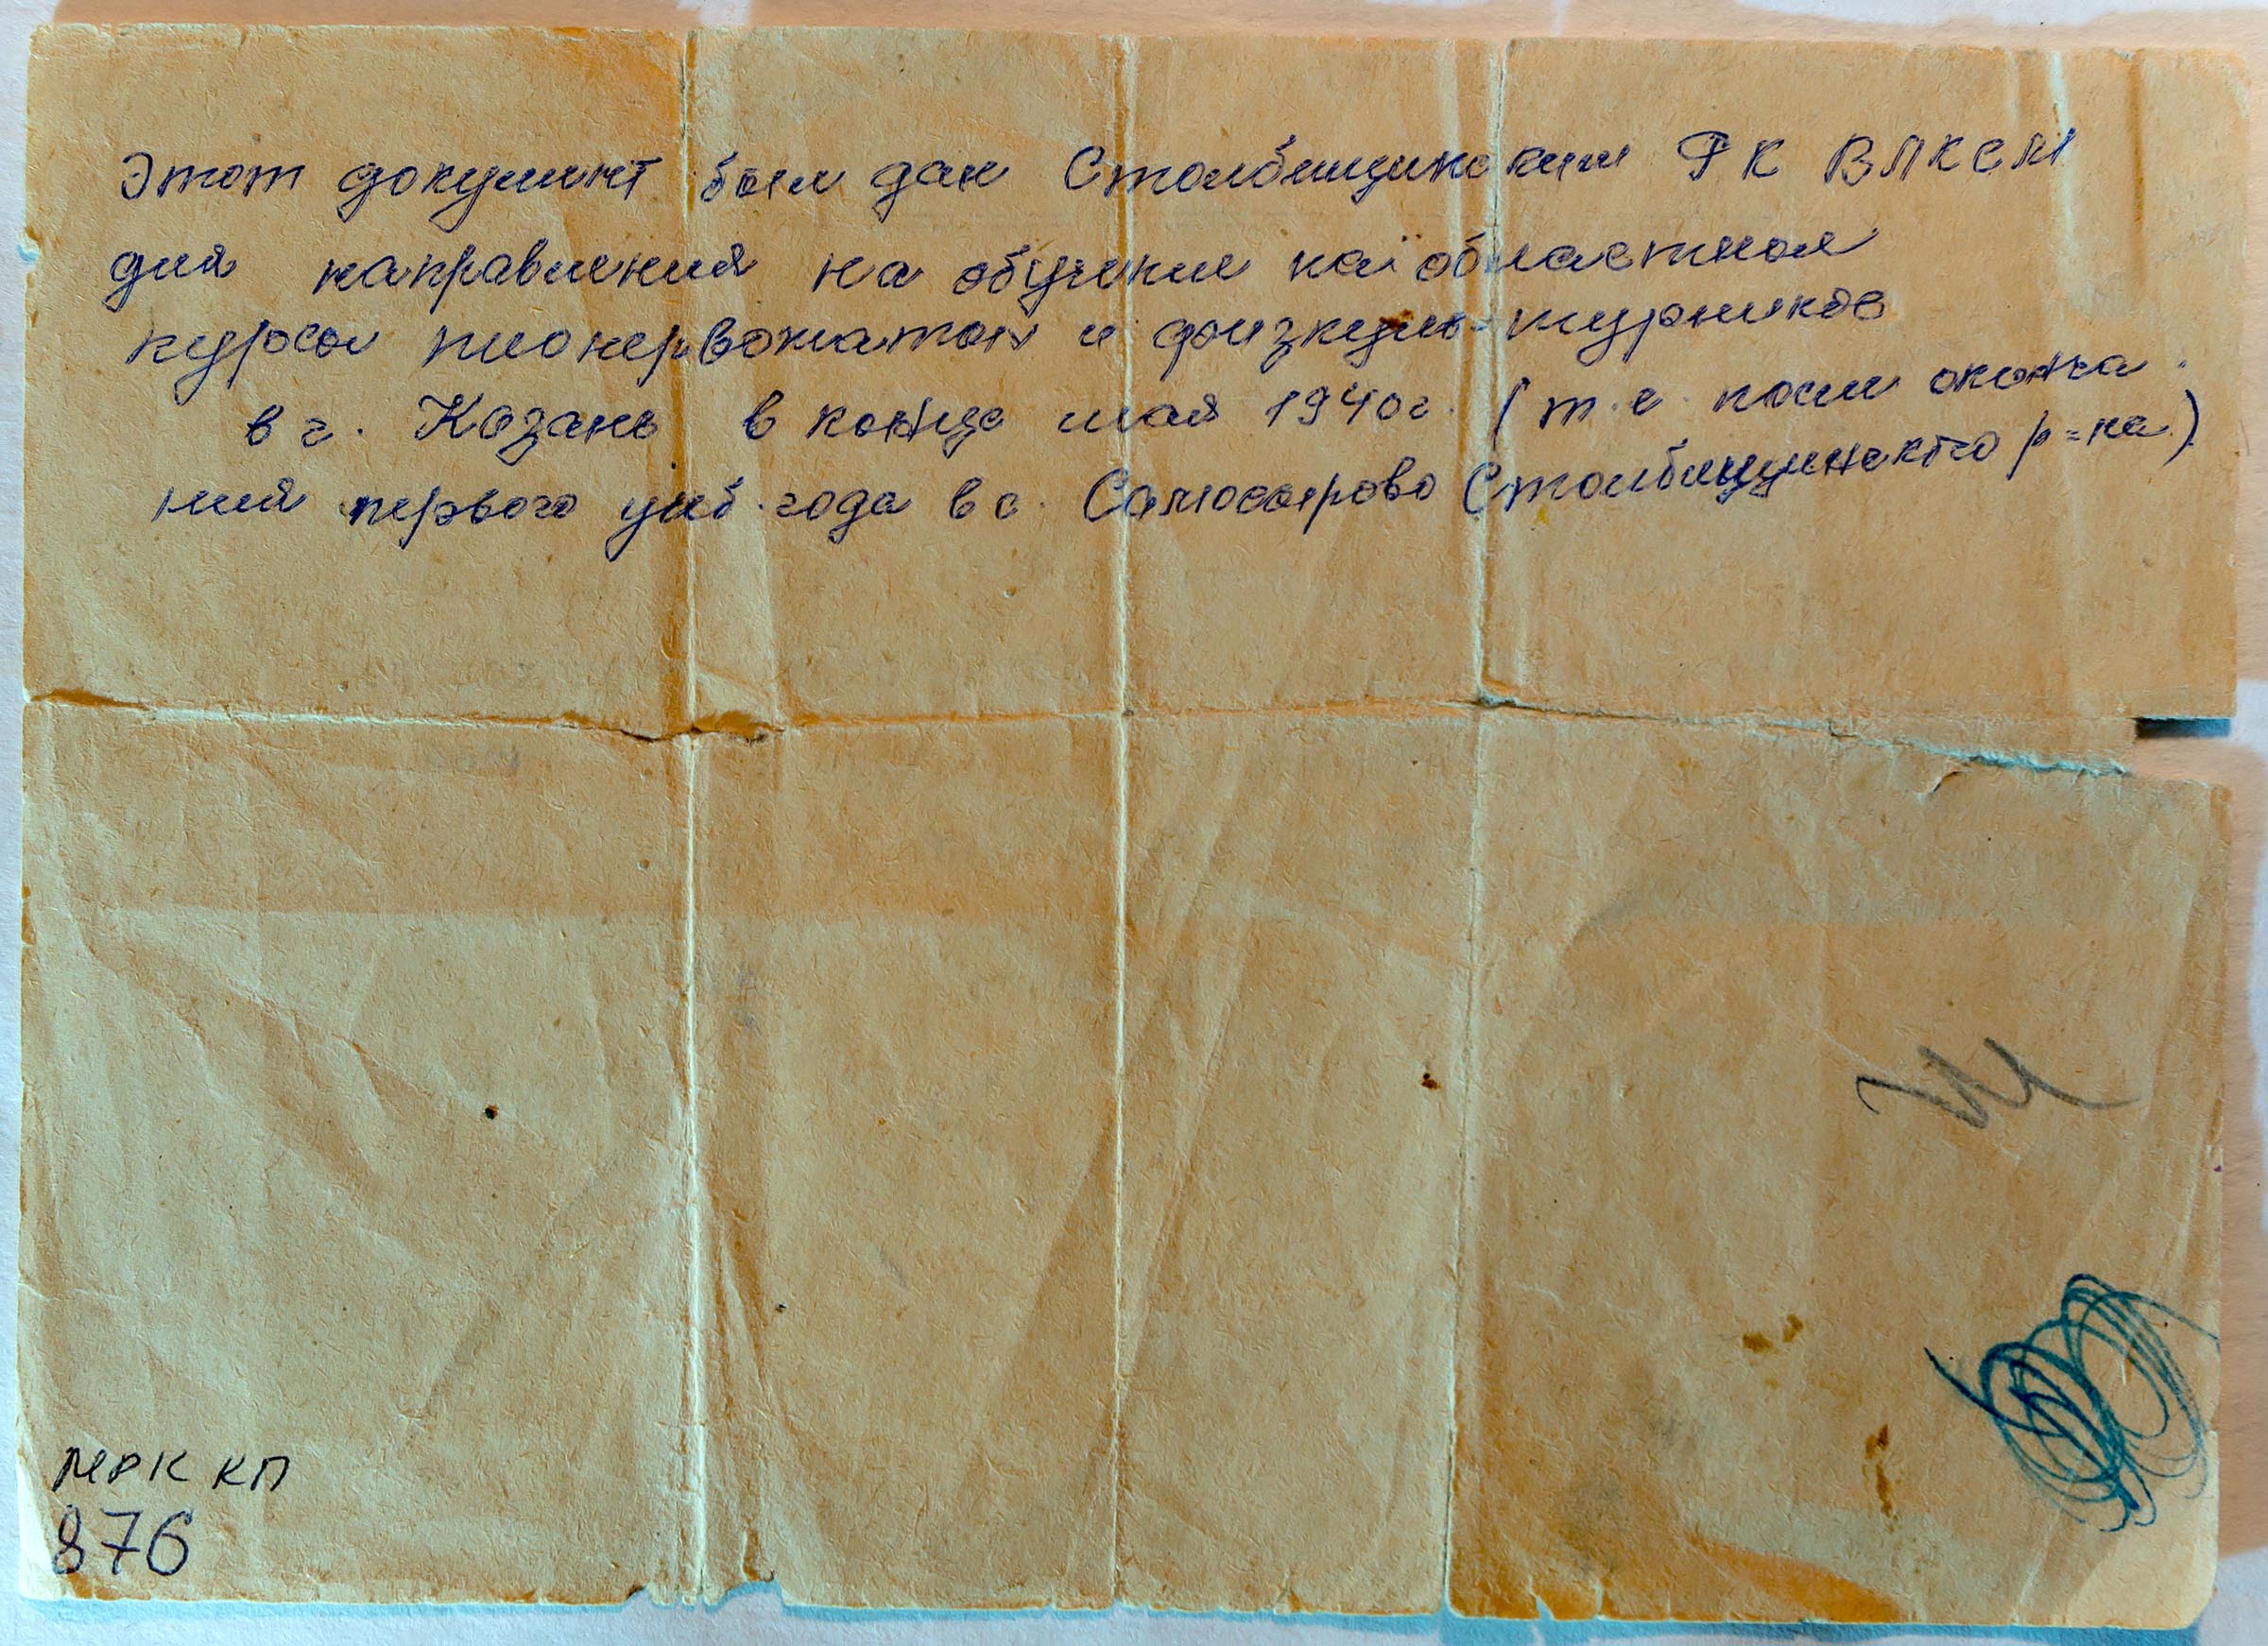 Этот документ был дан Столбищинским РК ВЛКСМ
для направления на обучение на областные
курсы пионервожатых и физкультурников
в г. Казань в конце мая 1940г. (т.е. после оконча
ния первого учеб. года в с. Салмосырово Столбищинского р=на.)
МРК КП
876